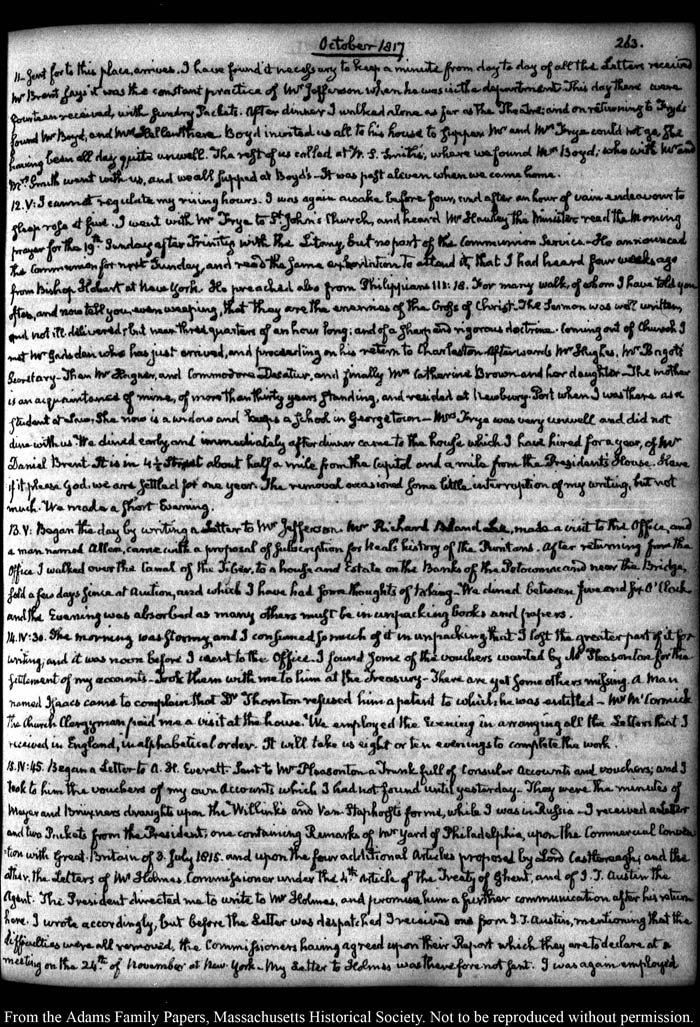 October 1817
263.
11— sent for to this place, arrives. I have found it necessary to keep a minute from day to day of all the Letters received
Mr Brent says it was the constant practice of Mr Jefferson when he was in the department. This day there were
fourteen received, with sundry Packets. After dinner I walked alone as far as the Theatre; and on returning to Frye's
found Mr Boyd, and Mrs there. Boyd invited us all to his house to supper. Mr and Mrs Frye could not go, She
having been all day quite unwell. The rest of us called at W. S. Smith's, where we found Mrs Boyd; who with Mr and
Mrs Smith went with us, and we all supped at Boyd's— It was past eleven when we came home.
12. V: I cannot regulate my rising hours. I was again awake before four, and after an hour of vain endeavour to
sleep rose at five. I went with Mr Frye to St John's Church, and heard Mr Hawley the Minister read the Morning
prayer for the 19th Sunday after Trinity with the Litany, but no part of the Communion Service— He announced
the Communion for next Sunday, and read the same exhortation to attend it, that I had heard four weeks ago
from Bishop Hobart at New York. He preached also from Philippians III: 18. For many walk, of whom I have told you
often, and now tell you, even weeping, that they are the enemies of the Cross of Christ— The Sermon was well written,
and not ill delivered; but near three quarters of an hour long; and of a sharp and rigorous doctrine. Coming out of Church I
met Mr Gadsden who has just arrived, and proceeding on his return to Charleston. Afterwards Mr Hughes, Mr Bagot's
Secretary— Then Mr and Commodore Decatur, and finally Mrs Catherine Brown and her daughter— The mother
is an acquaintance of mine, of more than thirty years standing, and resided at Newbury-Port when I was there as a
Student at Law. She now is a widow and keeps a School in Georgetown— Mrs Frye was very unwell and did not
dine with us. We dined early and immediately after dinner came to the house which I have hired for a year, of Mr
Daniel Brent. It is in 4½ Street about half a mile from the Capitol and a mile from the President's House. Here
if it please God, we are settled for one year. The removal occasioned some little interruption of my writing, but not
much. We made a short Evening.
13. V: Began the day by writing a Letter to Mr Jefferson. Mr Richard Bland Lee, made a visit to the Office, and
a man named Allen, came with a proposal of subscription for Neal's history of the Puritans. After returning from the
Office I walked over the Canal of the Tiber, to a house and Estate on the Banks of the Potowmac and near the Bridge,
sold a few days since at Auction, and which I have had some thoughts of . We dined between five and six O'Clock
and the Evening was absorbed as many others must be in unpacking books and papers.
14. IV: 30. The morning was stormy, and I consumed so much of it in unpacking that I lost the greater part of it for
writing; and it was noon before I went to the Office. I found some of the vouchers wanted by Mr Pleasonton for the
settlement of my accounts— Took them with me to him at the Treasury— There are yet some others missing. A Man
named Isaacs came to complain that Dr Thornton refused him a patent to which, he was entitled— Mr McCormick
the Church Clergyman paid me a visit at the house. We employed the Evening in arranging all the Letters that I
received in England, in alphabetical order. It will take us eight or ten evenings to complete the work.
15. IV: 45. Began a Letter to A. H. Everett. Sent to Mr Pleasonton a Trunk full of Consular Accounts and vouchers; and I
took to him the vouchers of my own Accounts which I had not found until yesterday— They were the minutes of
Meyer and Bruxners draughts upon the Willinks and Van Staphorsts for me, while I was in Russia— I received a Letter
and two Packets from the President; one containing Remarks of Mr Yard of Philadelphia, upon the Commercial Conven-
tion with Great-Britain of 3. July 1815. and upon the four additional Articles proposed by Lord Castlereagh; and the
other, the Letters of Mr Holmes Commissioner under the 4th Article of the Treaty of Ghent, and of J. T. Austin the
Agent. The President directed me to write to Mr Holmes, and promise him a further communication after his return
here. I wrote accordingly, but before the Letter was despatched I received one from J. T. Austin, mentioning that the
difficulties were all removed, the Commissioners having agreed upon their Report which they are to declare at a
meeting on the 24th of November at New York— My Letter to Holmes was therefore not sent. I was again employed
From the Adams Family Papers, Massachusetts Historical Society. Not to be reproduced without permission.